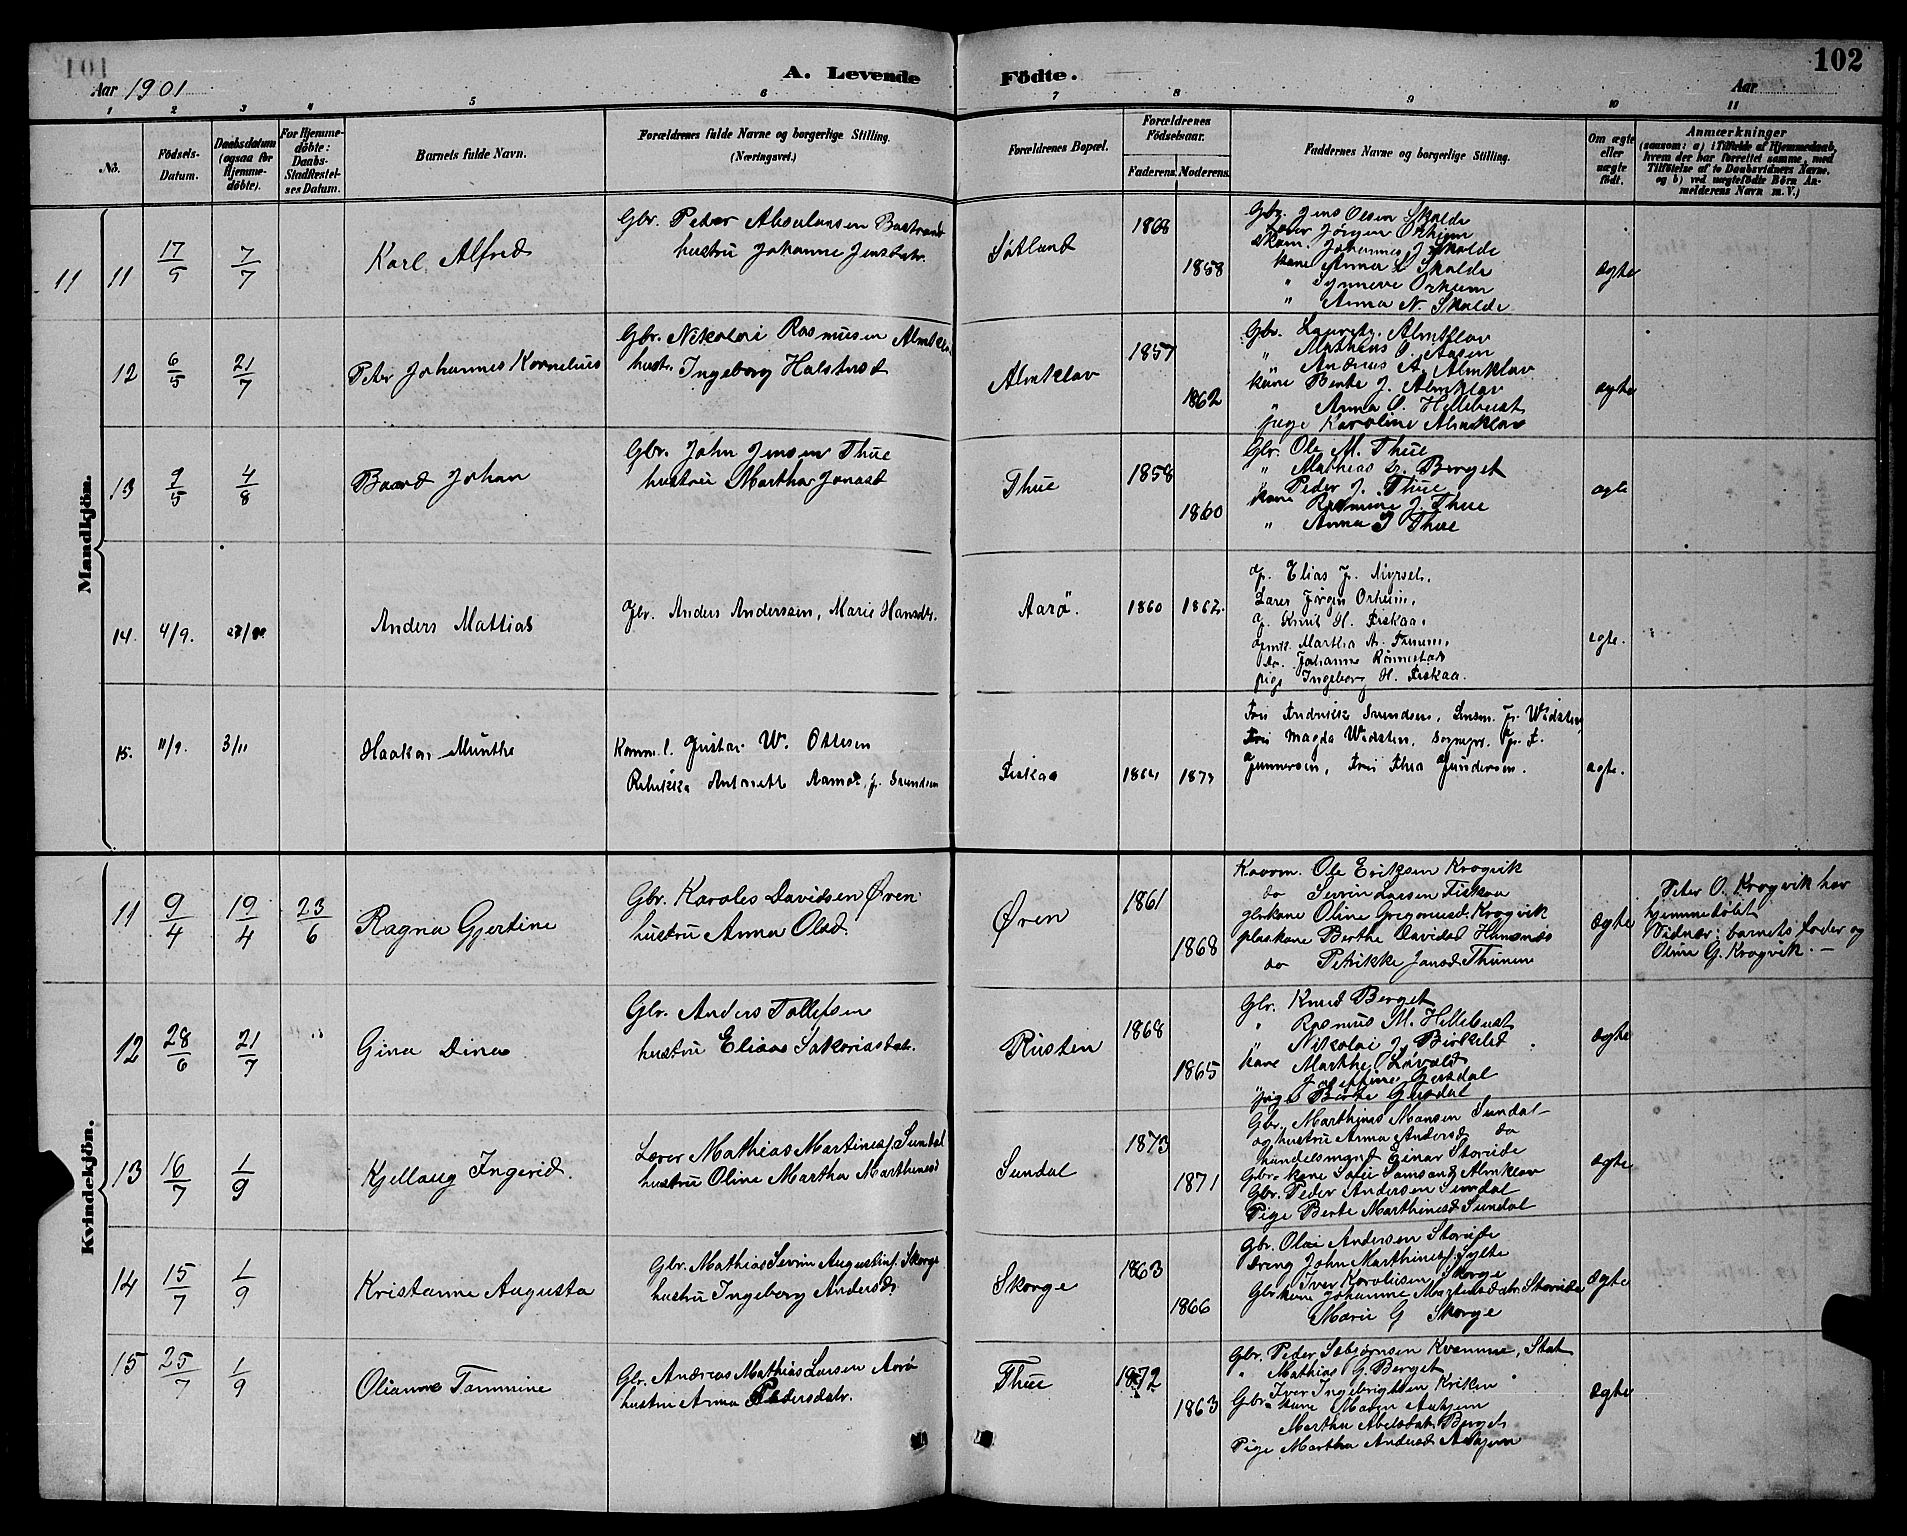 101
102
Aar 1901
A. Levende
Födte.
Aar
1 2 3 4 5 6 7 8 9 10 11
No.
Födsels-
Datum.
Daabsdatum
(ogsaa for
Hjemme-
döbte).
For Hjemme-
döbte:
Daabs-
Stadfestel-
ses Datum.
Barnets fulde Navn.
Forældrenes fulde Navne og borgerlige Stilling.
(Næringsvei.)
Forældrenes Bopæl.
Forældrenes
Födselsaar.
Faderens. Moderens.
Faddernes Navne og borgerlige Stilling.
Om ægte
eller
uægte
födt.
Anmærkninger
(saasom: a) i Tilfælde af Hjemmedaab,
hvem der har forrettet samme, med
Tilföielse af to Daabsvidners Navne,
og b) ved uægtefödte Börn An-
melderens Navn m. V.)
Mandkjön.
11 11 17/5 7/7
Karl Alfred
Gbr. Peder Absalonsen Bastrand
hustru Johanne Jensdatr.
Søtland
1868
1858
Gbr. Jens Olsen Skalde
Lærer Jørgen Orheim
Johannes J. Skalde
kone Anna L Skalde
" Synneve Orheim
" Anna N. Skalde
ægte
12 6/5 21/7
Peter Johannes Kornelius
Gbr. Nikolai Rasmusen Almklov
hustr. Ingeborg Halstensd
Almklav
1857
1862
Gbr. Lauritz Almklav
" Mathias O. Aasen
" Andreas A. Almklav
kone Berte J. Almklav
" Anna O. Hellebust
pige Karoline Almklav
ægte
13 9/5 4/8
Baard Johan
Gbr. John Jensen Thue
hustru Martha Jonasd
Thue
1858
1860
Gbr. Ole M. Thue
" Mathias G. Berget
" Peder J. Thue
kone Rasmine J. Thue
" Anna J Thue
ægte
14. 4/9.
Anders Mattias
Gbr. Anders Anderssen, Marie Hansdtr.
Aarö.
1860 1862.
G. Elias J. Myrset,
Lærer Jörgen Orheim,
G. Knut H. Fiskaa,
Martha A.
do. Johanne Rönnestad
pige Ingeborg H. Fiskaa.
egte.
15. 11/9. 3/11
Haakon Munthe
Komm.l. Gustav W. Ottesen
Rebekka Antonette Aamot, f. Svendsen
Fiskaa
1864 1873
Frö Fredrikke Svendsen, Lensm. Jr. Widsten,
Fru Magda Widsten, Sognepr. G. F.
Gunnersen, Frö Thea Gundersen.
ægte.
Kvindekjön.
11 9/4 19/4 23/6
Ragna Gjertine
Gbr. Karoles Davidsen Øren
hustru Anna Olsd.
Øren
1861
1868
Kaarm. Ole Eriksen Krogvik
do Sevrin Larsen Fiskaa
gbrkone Oline Gregoriusd. Krogvik
plaskone Berthe Davidsd Hansnæs
do Petrikke Jansd Thunem
ægte
Peter O. Krogvik har
hjemmedøbt
Vidner: barnets fader og
Oline G. Krogvik. —
12 28/6 21/7
Gina Dina
Gbr. Anders Tollefsen
hustru Eliane Sakariasdatr.
Rusten
1868
1865
Gbr. Knud Berget
" Rasmus M. Hellebust
" Nikolai J. Birkeled
kone Marthe Løvold
Josefine Gursdal
pige Berte Gusdal
ægte
13 16/7 1/9
Kjellaug Ingerid
Lærer Mathias Martinesf. Sundal
hustru Oline Martha Marthinesd
Sundal
1873
1871
Gbr. Marthines Monsen Sundal
og hustru Anna Andersd do
Handelsmand Einar Storeide
Gbr. kone Sofie Samsond Almklav
Gbr. Peder Andersen Sundal
Pige Berte Marthinesd Sundal
ægte
14 15/7 1/9
Kristanne Augusta
Gbr. Mathias Sevrin Augustinf. Skorge
hustru Ingeborg Andersd
Skorge
1863
1866
Gbr. Olai Andersen Storeide
Dreng John Marthinesf. Sylte
Gbr. Iver Karoliusen Skorge
kone Johanne Mortensdatr. Storeide
Marie G Skorge
ægte
15 25/7 1/9
Olianne Tammine
Gbr. Andreas Mathias Larsen Aarö
hustru Anna Pedersdatr.
Thue
1872
1863
Gbr. Peder Sebjørnsen Kvamme, Stat
" Mathias G. Berget
Gbr. Iver Ingebrigtsen Kriken
kone Maren Aahjem
Martha Abelsdatr. Berget
Pige Martha Andersd Aahjem
ægte